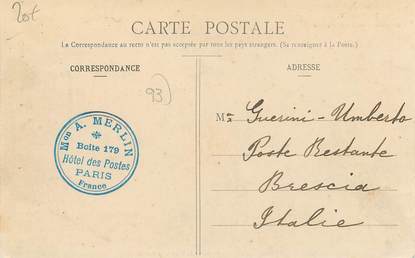 20€
CARTE POSTALE
La Correspondance au recto n'est pas acceptée par tous les pays étrangers. (Se renseigner à la Poste.)
CORRESPONDANCE
ADRESSE
93
Mon A. MERLIN
Boite 179
Hôtel des Postes
PARIS
France
Mr Guerini-Umberto
Poste Restante
Brescia
Italie